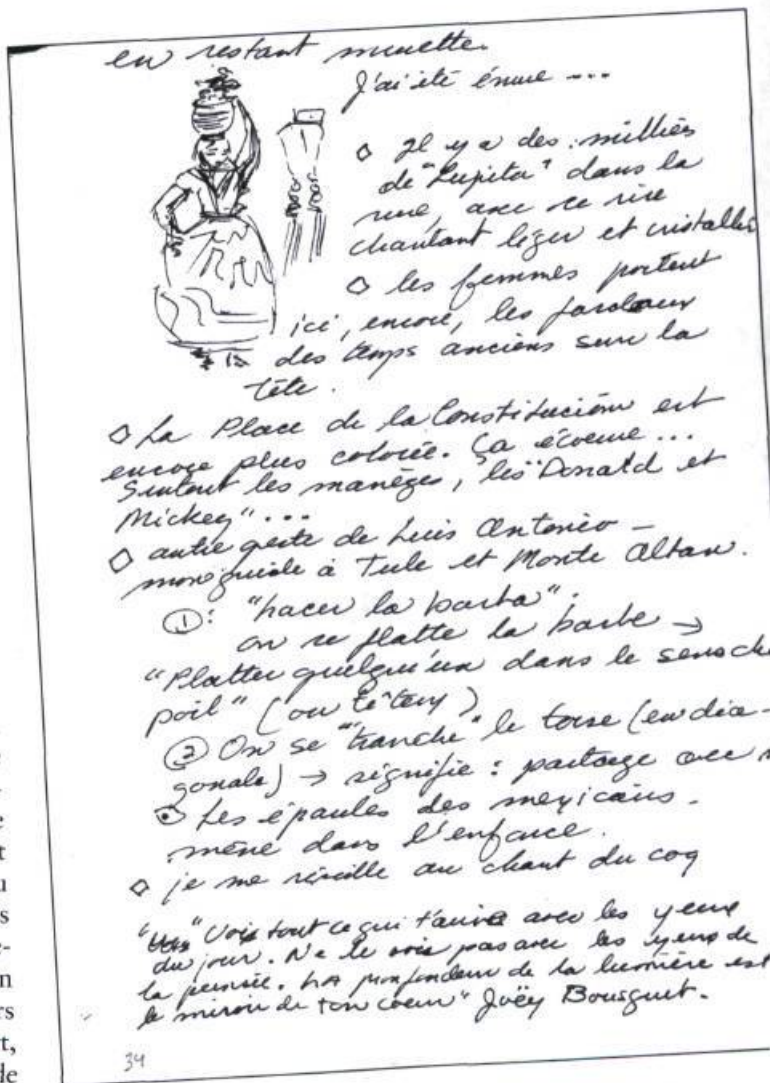 en restant muette.
J'ai été émue ...
◊ Il y a des milliers
de "Lupita" dans la
rue, avec ce rire
chantant léger et cristallin
◊ les femmes portent
ici, encore, les fardeaux
des temps anciens sur la
tête.
◊ La Place de la Constitución est
encore plus colorée. Ça écoeure ...
Surtout les manèges, les "Donald et
Mickey" ...
◊ autre geste de Luis Antonio –
mon guide à Tule et Monte Alban.
①: "hacer la barba".
on se flatte la barbe →
"Flatter quelqu'un dans le sens du
poil" (ou têter)
② On se "tranche" le torse (en dia-
gonale) → signifie : partage avec
Les épaules des mexicains.
même dans l'enfance.
◊ je me réveille au chant du coq
"Vois tout ce qui t'arrive avec les yeux
du jour. Ne le vois pas avec les yeux de
la pensée. La profondeur de la lumière est
le miroir de ton coeur" Joëy Bousquet.
34
e
-
e
t
u
s
e-
n
rs
rt,
de